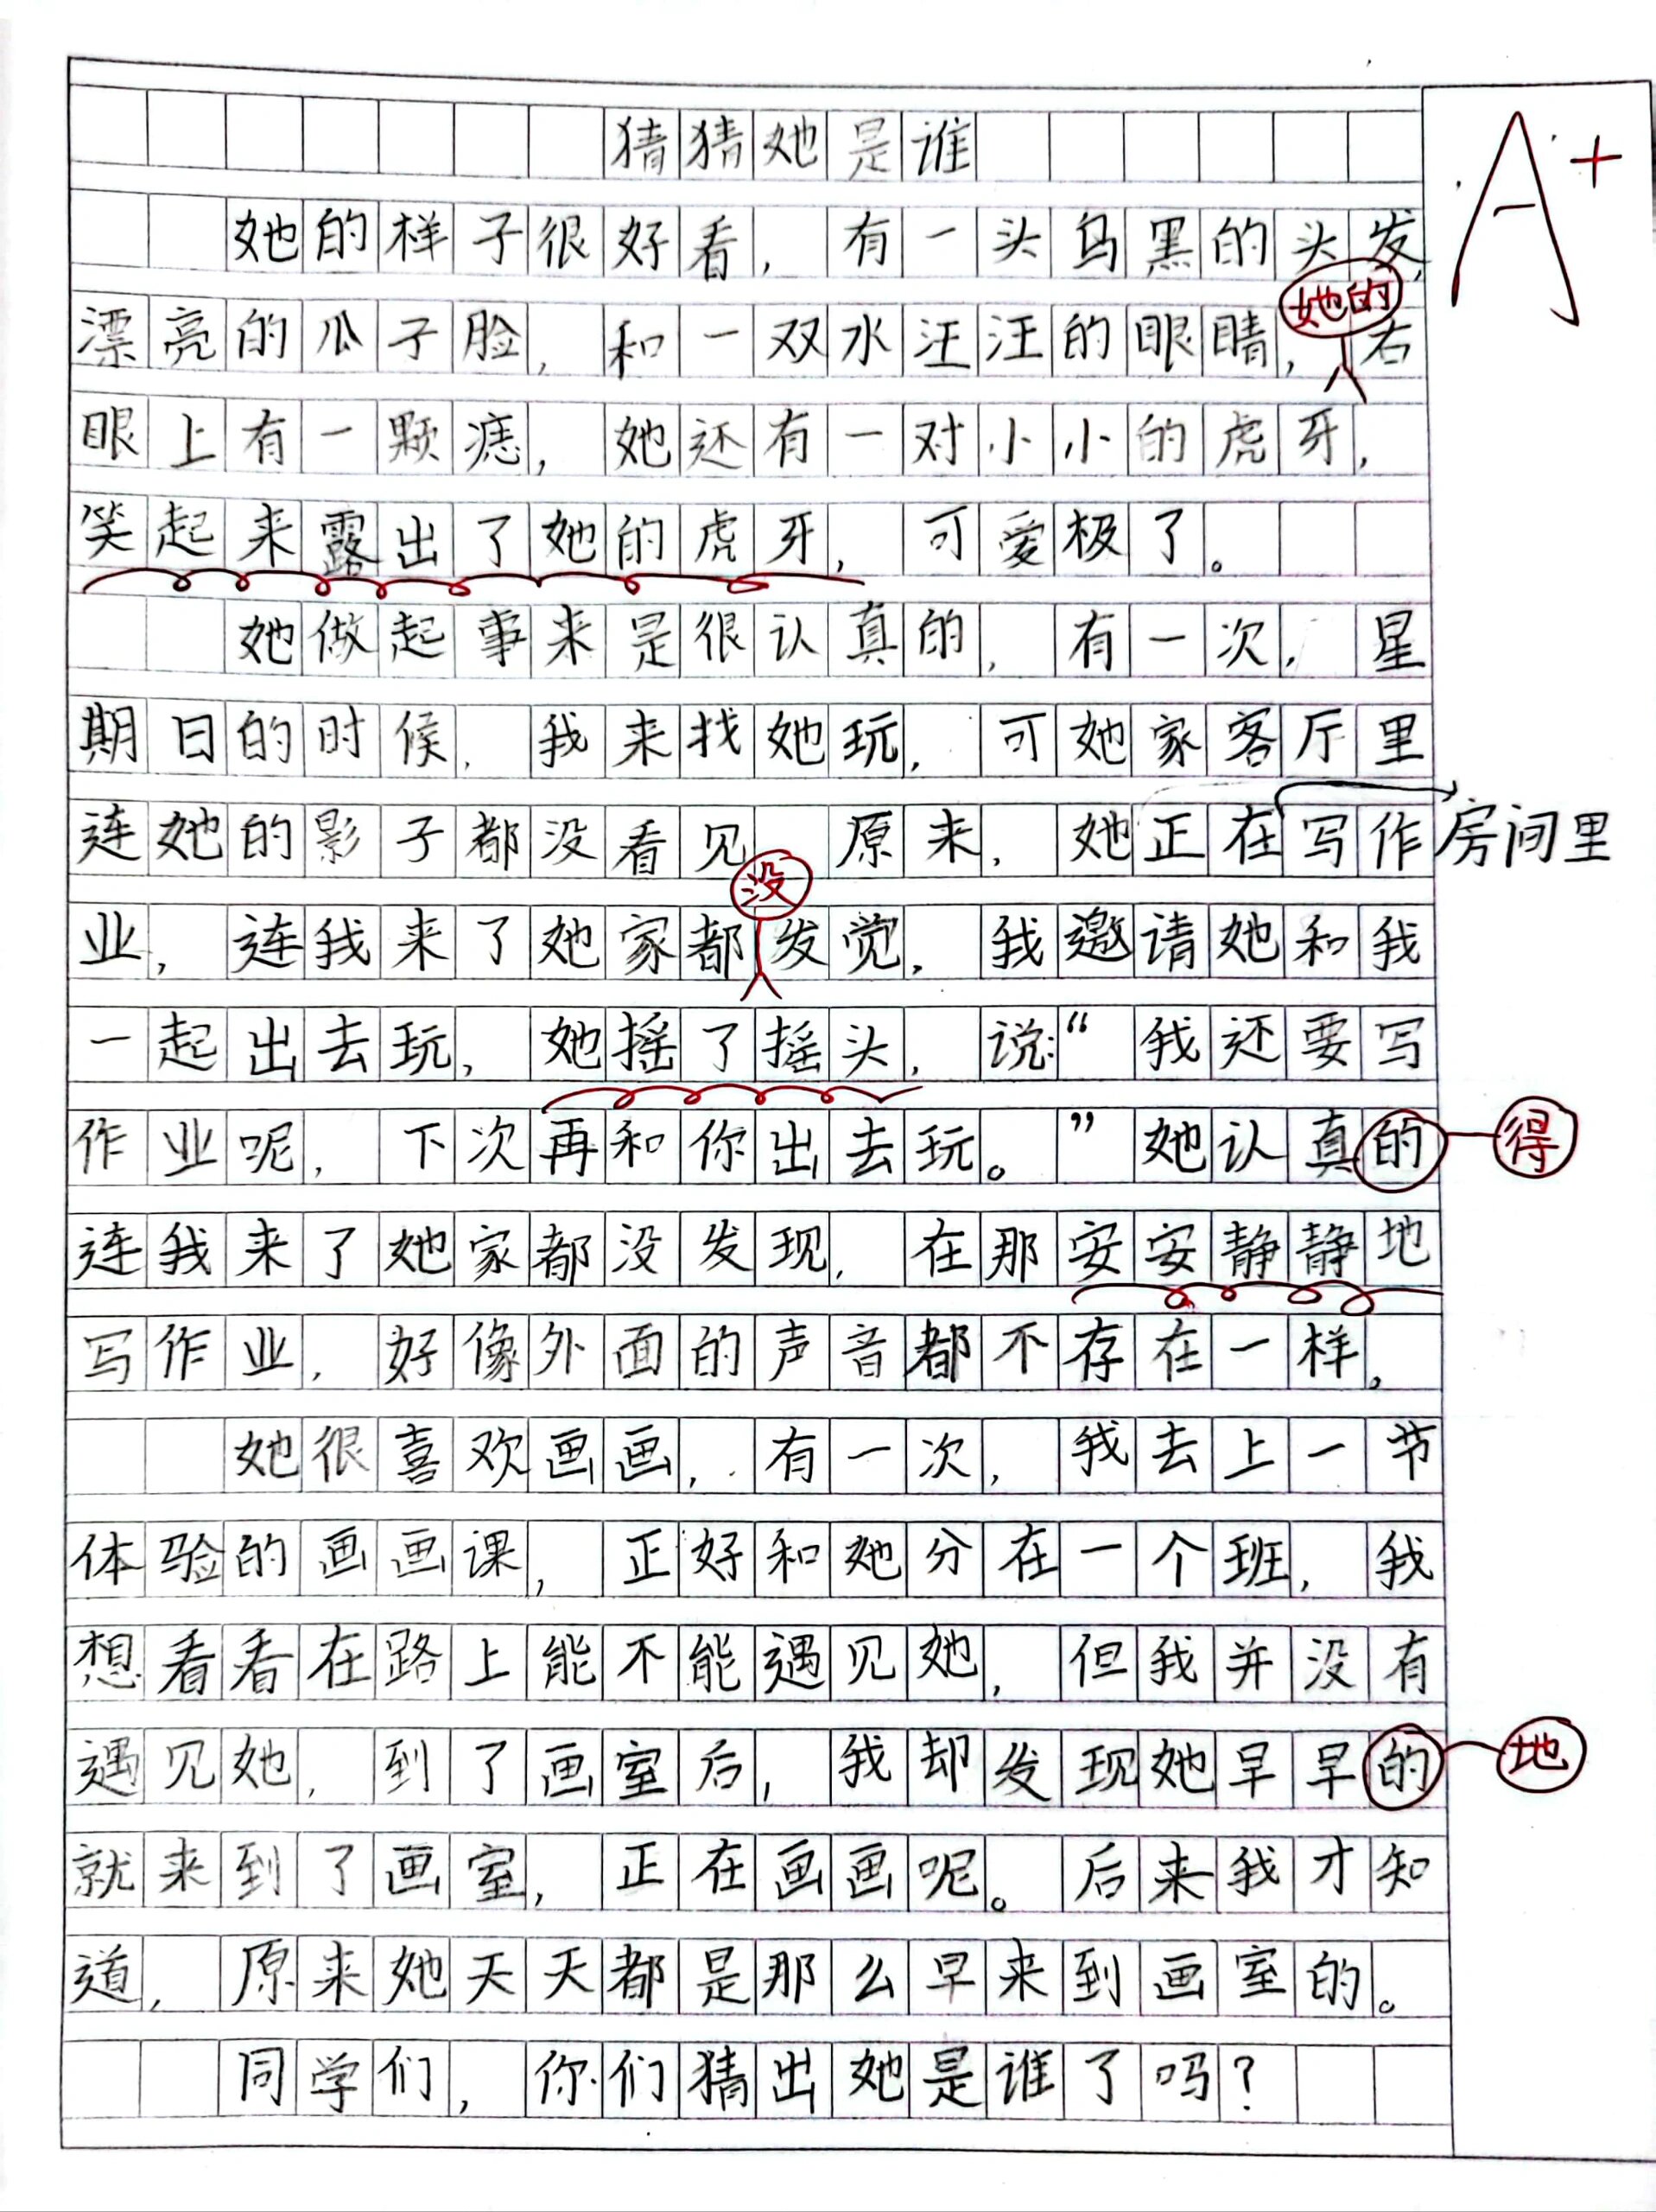 猜猜她是谁
A+
她的样子很好看，有一头乌黑的头发，
她的
漂亮的瓜子脸，和一双水汪汪的眼睛，右
眼上有一颗痣，她还有一对小小的虎牙，
笑起来露出了她的虎牙，可爱极了。
她做起事来是很认真的，有一次，星
期日的时候，我来找她玩，可她家客厅里
连她的影子都没看见 原来，她正在写作
房间里
没
业，连我来了她家都发觉，我邀请她和我
一起出去玩，她摇了摇头，说：“我还要写
作业呢，下次再和你出去玩。”她认真的
得
连我来了她家都没发现，在那安安静静地
写作业，好像外面的声音都不存在一样。
她很喜欢画画，有一次，我去上一节
体验的画画课，正好和她分在一个班，我
想看看在路上能不能遇见她，但我并没有
遇见她，到了画室后，我却发现她早早的
地
就来到了画室，正在画画呢。后来我才知
道，原来她天天都是那么早来到画室的。
同学们，你们猜出她是谁了吗？